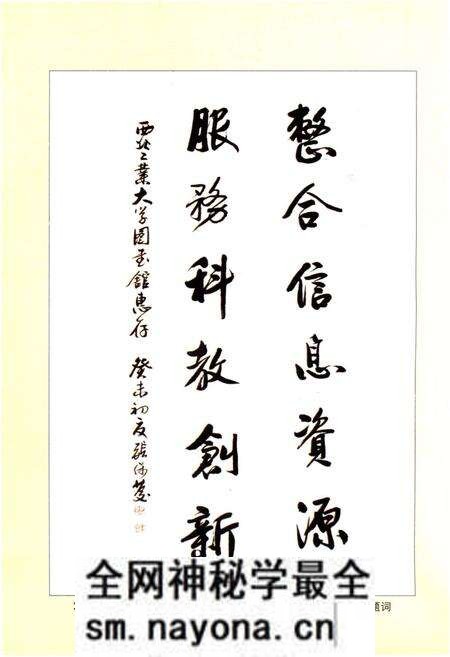 整合信息資源
服務科教創新
西北工業大学图书館惠存 癸未初夏張保慶
全网神秘学最全
sm.nayona.cn
题词